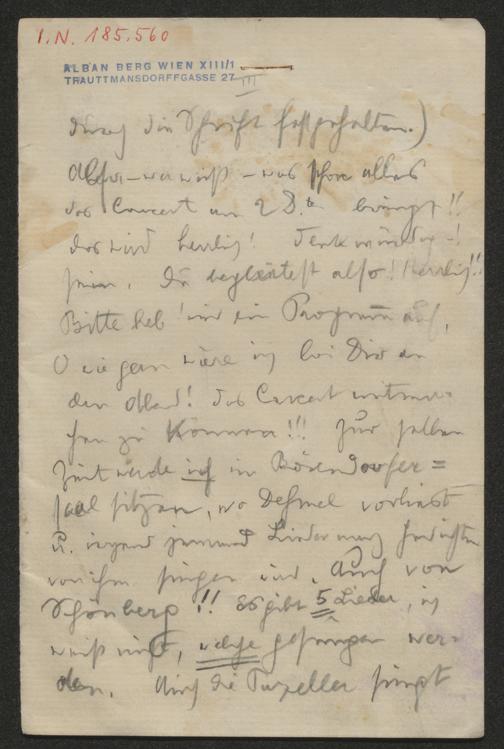 I.N. 185.560
ALBAN BERG WIEN XIII/1
TRAUTTMANSDORFFGASSE 27
III
durch die Schrift festgehalten.)
Also – wer weiß – was schon alles
das Concert am 28.ten bringt!!
das wird herrlich! Denkwürdig –!
sein. Du begleitest also! Herrlich!!
Bitte heb' mir ein Programm auf,
O wie gern wäre ich bei Dir an
dem Abend! das Concert mitma-
chen zu können!!! Zur selben
Zeit werde ich im Bösendorfer=
saal sitzen, wo Dehmel vorliest
u. irgend jemand Lieder nach Gedichten
von ihm singen wird. Auch von
Schönberg!! Es gibt 5 Lieder, ich
weiß nicht, welche gesungen wer-
den. Auch die singt